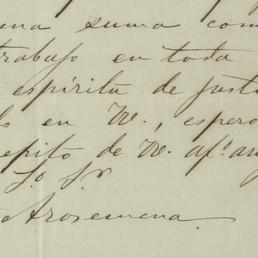 una suma com
trabajo en toda
espíritu de justi
en Vd., espero
repito de Vd. af.º am
S. S.
Arosemena.